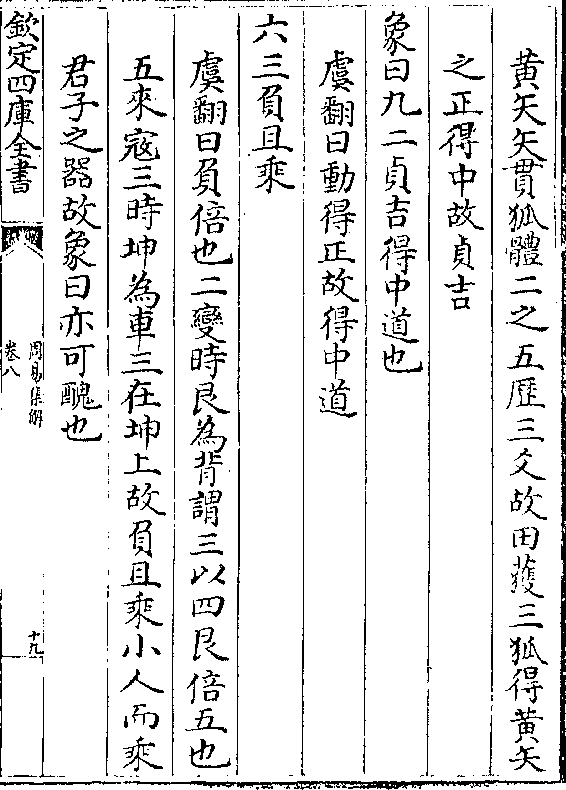 黄矢矢貫狐體二之五歴三爻故田獲三狐得黄矢
之正得中故貞吉
象曰九二貞吉得中道也
虞翻曰動得正故得中道
六三負且乘
虞翻曰負倍也二變時艮為背謂三以四艮倍五也
五來寇三時坤為車三在坤上故負且乘小人而乘
君子之器故象曰亦可醜也
欽定四庫全書
周易集解
卷八
十九